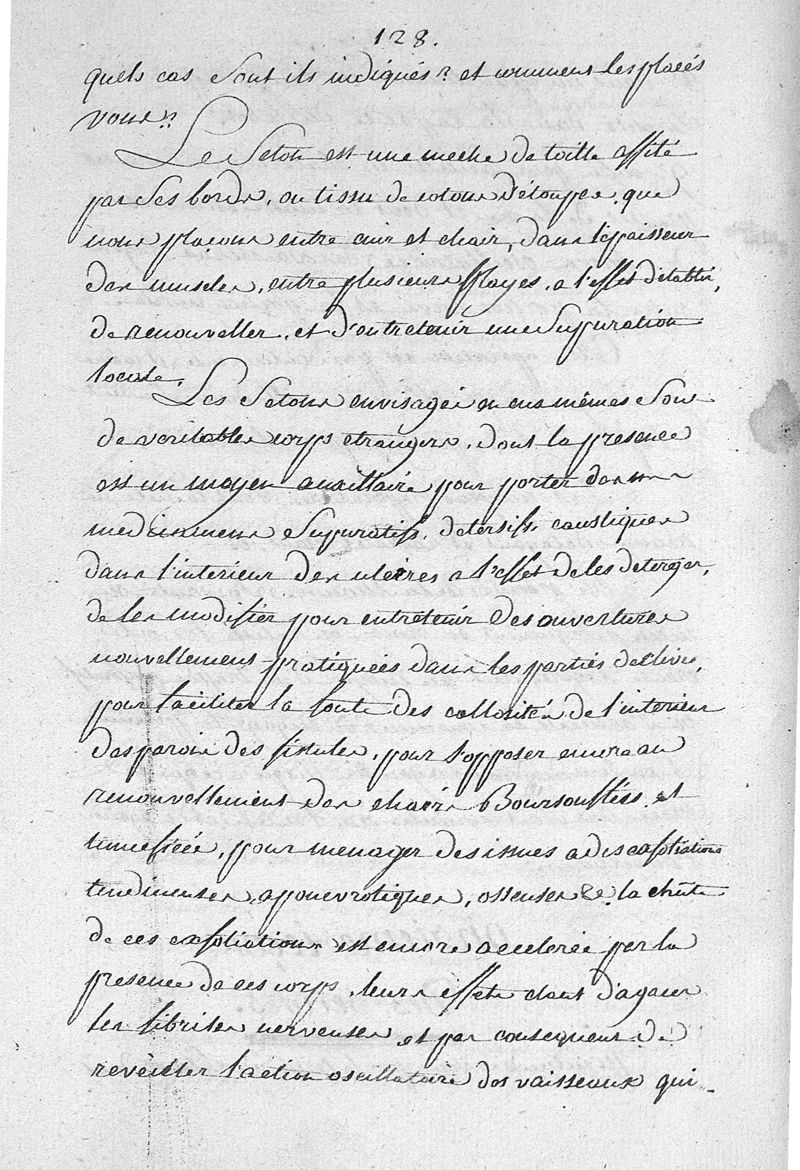 128.
quels cas sont ils indiqués? et comment les placés
vous?
Le Seton est une meche de toille effilé
par ses bords, ou tissu de cotons d'etoupes, que
nous placons entre cuir et chair, dans l'epaisseur
des muscles, entre plusieurs playes, a l'effet d'etablir,
de renouveller, et d'entretenir une supuration
locale.
Les Setons envisagés en eux mêmes sont
de veritables corps etrangers, dont la presence
est un moyen auxiliaire pour porter des
medicamens supuratifs, detersifs, caustiques
dans l'interieur des ulceres a l'effet de les deterger,
de les modifier pour entretenir des ouvertures
nouvellement pratiquées dans les parties declives,
pour faciliter la fonte des callosités de l'interieur
des parois des fistules, pour s'opposer encore au
renouvellement des chairs Boursoufflées et
tumefiées, pour menager des issues a des exfoliations
tendineuses, aponevrotiques, osseuses &c. la chûte
de ces exfoliations est encore accelerée par la
presence de ces corps, leurs effets etant d'agacer
les fibriles nerveuses, et par consequent de
reveiller l'action oscillatoire des vaisseaux qui